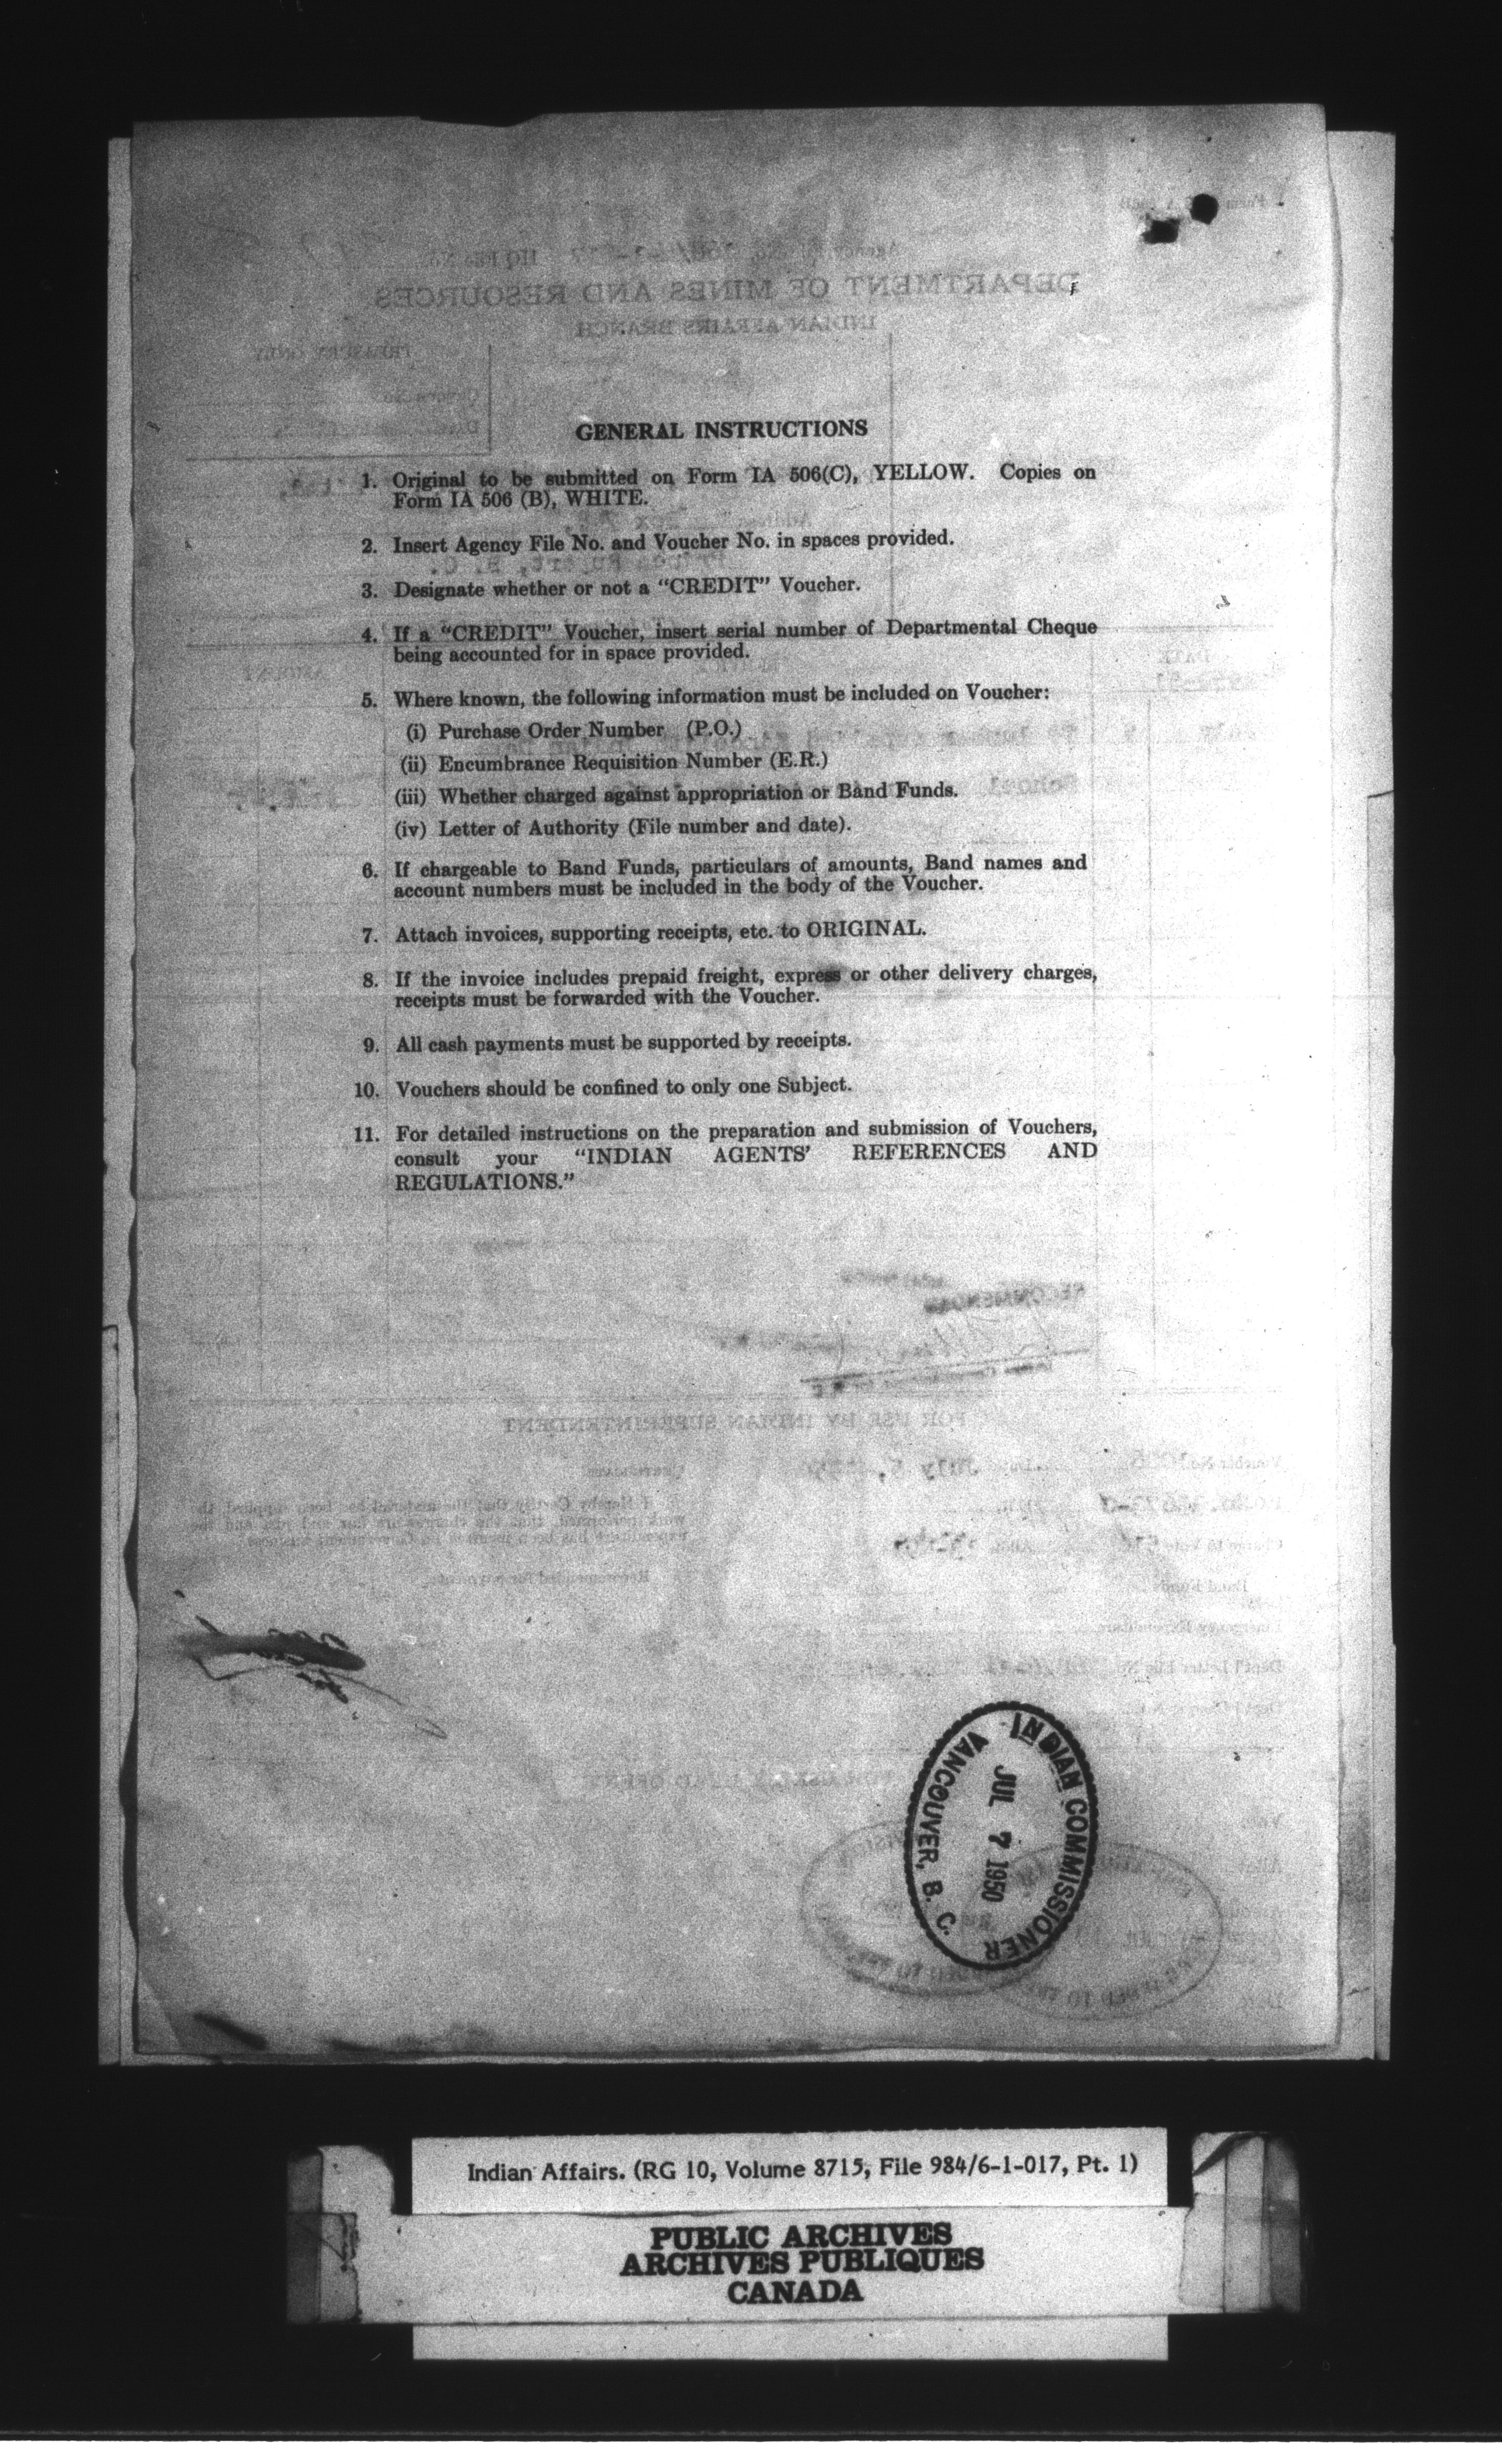 GENERAL INSTRUCTIONS
1. Original to be submitted on Form IA 506(C), YELLOW. Copies on
Form IA 506 (B), WHITE.
2. Insert Agency File No. and Voucher No. in spaces provided.
3. Designate whether or not a “CREDIT” Voucher.
4. If a “CREDIT” Voucher, insert serial number of Departmental Cheque
being accounted for in space provided.
5. Where known, the following information must be included on Voucher:
(i) Purchase Order Number (P.O.)
(ii) Encumbrance Requisition Number (E.R.)
(iii) Whether charged against appropriation or Band Funds.
(iv) Letter of Authority (File number and date).
6. If chargeable to Band Funds, particulars of amounts, Band names and
account numbers must be included in the body of the Voucher.
7. Attach invoices, supporting receipts, etc. to ORIGINAL.
8. If the invoice includes prepaid freight, express or other delivery charges,
receipts must be forwarded with the Voucher.
9. All cash payments must be supported by receipts.
10. Vouchers should be confined to only one Subject.
11. For detailed instructions on the preparation and submission of Vouchers,
consult your “INDIAN AGENTS’ REFERENCES AND
REGULATIONS.”
INDIAN COMMISSIONER
JUL 7 1950
VANCOUVER, B. C.
Indian Affairs. (RG 10, Volume 8715, File 984/6-1-017, Pt. 1)
PUBLIC ARCHIVES
ARCHIVES PUBLIQUES
CANADA